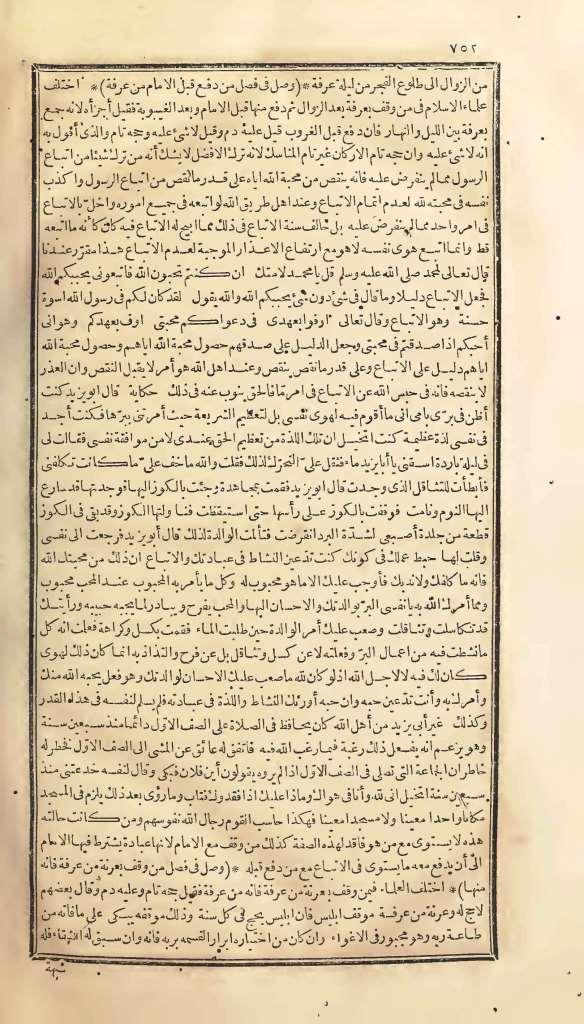 ٧٥٢
من الزوال الى طلوع الفجر من ليلة عرفة *(وصل فى فصل من دفع قبل الامام من عرفة)* اختلف
علماء الاسلام فى من وقف بعرفة بعد الزوال ثم دفع منها قبل الامام وبعد الغيبوبة فقيل أجزأه لانه جمع
بعرفة بين الليل والنهار فان دفع قبل الغروب قيل عليه دم وقيل لا شئ عليه وحجه تام والذى أقول به
انه لا شئ عليه وان حجه تام الاركان غير تام المناسك لانه ترك الافضل لا يشك أنه من ترك شيئا من اتباع
الرسول مما لم ينفرض عليه فانه ينقص من محبة الله اياه على قدر ما نقص من اتباع الرسول واكذب
نفسه فى محبته لله لعدم اتمام الاتباع وعند اهل طريق الله لو اتبعه فى جميع اموره واخل بالاتباع
فى امر واحد مما لم ينفرض عليه بل خالف سنة الاتباع فى ذلك مما ابيح له الاتباع فيه كان كأنه ما اتبعه
قط وانما اتبع هوى نفسه لا هو مع ارتفاع الاعذار الموجبة لعدم الاتباع هذا مقرر عندنا
قال تعالى لمحمد صلى الله عليه وسلم قل يا محمد لامتك ان كنتم تحبون الله فاتبعونى يحببكم الله
فجعل الاتباع دليلا وما قال فى شئ دون شئ يحببكم الله والله يقول لقد كان لكم فى رسول الله اسوة
حسنة وهو الاتباع وقال تعالى اوفوا بعهدى فى دعواكم محبتى اوف بعهدكم وهو انى
أحبكم اذا صدقتم فى محبتى وجعل الدليل على صدقهم حصول محبة الله اياهم وحصول محبة الله
اياهم دليل على الاتباع وعلى قدر ما نقص ينقص وعند اهل الله هو أمر لا يقبل النقص وان العذر
لا ينقصه فانه فى حبس الله عن الاتباع فى امر ما فالحق ينوب عنه فى ذلك حكاية قال ابو يزيد كنت
أظن فى برى بامى انى ما أقوم فيه لهوى نفسى بل لتعظيم الشريعة حيث أمرتنى ببرها فكنت أجد
فى نفسى لذة عظيمة كنت اتخيل ان تلك اللذة من تعظيم الحق عندى لا من موافقة نفسى فقالت لى
فى ليلة باردة اسقنى يا أبا يزيد ماء فثقل على التحرك لذلك فقلت والله ما خف على ما كانت تكلفنى
فأبطأت للتثاقل الذى وجدت قال ابو يزيد فقمت بمجاهدة وجئت بالكوز اليها فوجدتها قد سارع
اليها النوم ونامت فوقفت بالكوز على رأسها حتى استيقظت فناولتها الكوز وقد بقى فى الكوز
قطعة من جلدة أصبعى لشدة البرد انقرضت فتألمت الوالدة لذلك قال أبو يزيد فرجعت الى نفسى
وقلت لها حبط عملك فى كونك كنت تدعين النشاط فى عبادتك والاتباع ان ذلك من محبتك الله
فانه ما كلفك ولا ندبك فأوجب عليك الا ما هو محبوب له وكل ما يأمر به المحبوب عند المحب محبوب
ومما أمرك الله به يا نفسى البر بوالدتك والاحسان اليها والمحب يفرح ويبادر لما يحبه حبيبه ورأيتك
قد تكاسلت وتثاقلت وصعب عليك أمر الوالدة حين طلبت الماء فقمت بكسل وكراهة فعلمت انه كل
ما نشطت فيه من اعمال البر وفعلته لا عن كسل وتثاقل بل عن فرح والتذاذ به انما كان ذلك لهوى
كان لك فيه لا لاجل الله اذ لو كان لله ما صعب عليك الاحسان لوالدتك وهو فعل يحبه الله منك
وأمرك به وأنت تدعين حبه وان حبه أورثك النشاط واللذة فى عبادته فلم يسلم لنفسه فى هذا القدر
وكذلك غير أبى يزيد من أهل الله كان يحافظ فى الصلاة على الصف الاول دائما منذ سبعين سنة
وهو يزعم انه يفعل ذلك رغبة فيما رغب الله فيه فاتفق له عائق عن المشى الى الصف الاول فخطر له
خاطر ان الجماعة التى تصلى فى الصف الاول اذا لم يروه يقولون أين فلان فبكى وقال لنفسه خدعتنى منذ
سبعين سنة اتخيل انى لله وأنا فى هواك وماذا عليك اذا فقدوك فتاب وما رؤى بعد ذلك يلزم فى المسجد
مكانا واحدا معينا ولا مسجدا معينا فهكذا حاسب القوم رجال الله نفوسهم ومن كانت حالته
هذه لا يستوى مع من هو فاقد لهذه الصفة كذلك من وقف مع الامام لانها عبادة يشترط فيها الامام
الى أن يدفع معه ما يستوى فى الاتباع مع من دفع قبله *(وصل فى فصل من وقف بعرنة من عرفة فانه
منها)* اختلف العلماء فيمن وقف بعرنة من عرفة فانه من عرفة فقيل حجه تام وعليه دم وقال بعضهم
لا حج له وعرنة من عرفة موقف ابليس فان ابليس يحج فى كل سنة وذلك موقفه يبكى على ما فاته من
طاعة ربه وهو مجبور فى الاغواء وان كان من اختياره ابرار القسمه بربه فانه وان سبق له الشقاء فله
شبهة